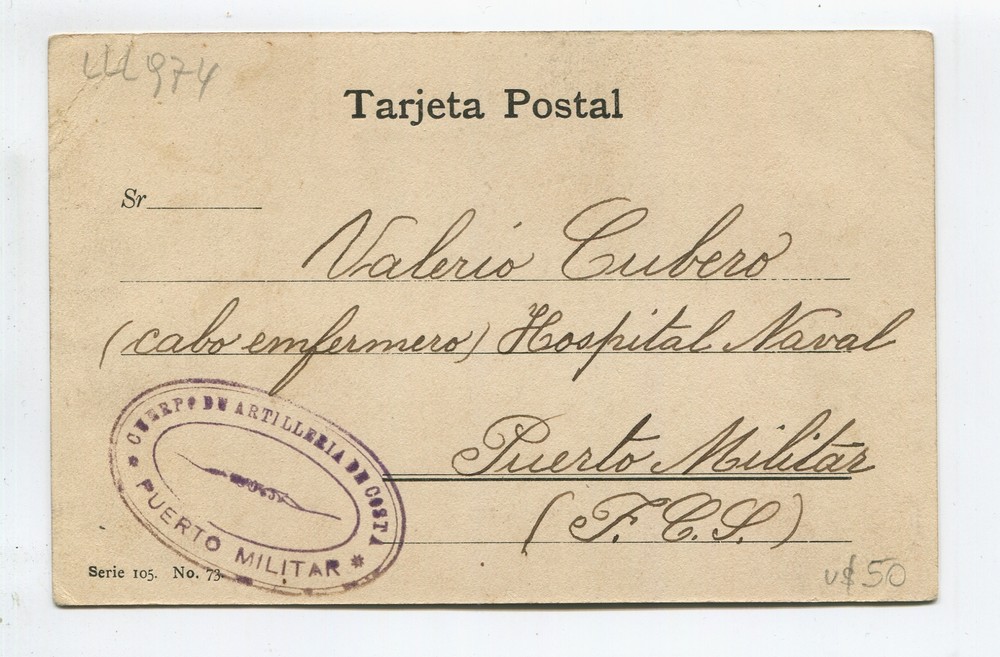 974
Tarjeta Postal
Sr
Valerio Cubero
(cabo emfermero) Hospital Naval
Puerto Militar
(F.C.S.)
CUERPO DE ARTILLERIA DE COSTA
PUERTO MILITAR
Serie 105. No. 73.
U$ 50